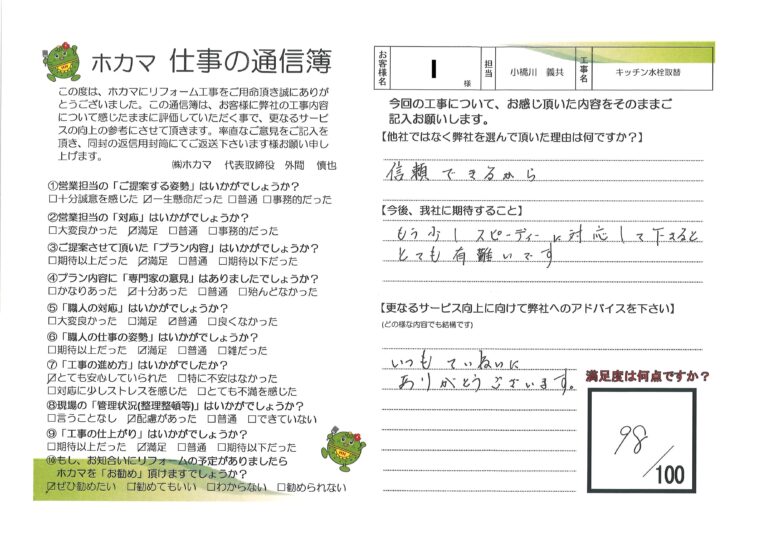 ホカマ 仕事の通信簿
この度は、ホカマにリフォーム工事をご用命頂き誠にありが
とうございました。この通信簿は、お客様に弊社の工事内容
について感じたままに評価していただく事で、更なるサービス
の向上の参考にさせて頂きます。率直なご意見をご記入を
頂き、同封の返信用封筒にてご返送下さいます様お願い申し
上げます。
㈱ホカマ 代表取締役 外間 慎也
①営業担当の「ご提案する姿勢」はいかがでしょうか？
□十分誠意を感じた ☑一生懸命だった □普通 □事務的だった
②営業担当の「対応」はいかがでしょうか？
□大変良かった ☑満足 □普通 □事務的だった
③ご提案させて頂いた「プラン内容」はいかがでしょうか？
□期待以上だった ☑満足 □普通 □期待以下だった
④プラン内容に「専門家の意見」はありましたでしょうか？
□かなりあった ☑十分あった □普通 □殆んどなかった
⑤「職人の対応」はいかがでしょうか？
□大変良かった □満足 ☑普通 □良くなかった
⑥「職人の仕事の姿勢」はいかがでしょうか？
□期待以上だった ☑満足 □普通 □雑だった
⑦「工事の進め方」はいかがでしたか？
☑とても安心していられた □特に不安はなかった
□対応に少しストレスを感じた □とても不満を感じた
⑧現場の「管理状況(整理整頓等)」はいかがでしょうか？
□言うことなし ☑配慮があった □普通 □できていない
⑨「工事の仕上がり」はいかがでしょうか？
□期待以上だった ☑満足 □普通 □期待以下だった
⑩もし、お知合いにリフォームの予定がありましたら
ホカマを「お勧め」頂けますでしょうか？
☑ぜひ勧めたい □勧めてもいい □わからない □勧められない
お客様名 I 様 担当 小橋川 義共 工事名 キッチン水栓取替
今回の工事について、お感じ頂いた内容をそのままご
記入お願いします。
【他社ではなく弊社を選んで頂いた理由は何ですか？】
信頼できるから
【今後、我社に期待すること】
もう少しスピーディーに対応して下さると
とても有難いです
【更なるサービス向上に向けて弊社へのアドバイスを下さい】
(どの様な内容でも結構です)
いつもていねいに
ありがとうございます。
満足度は何点ですか？
98
/100